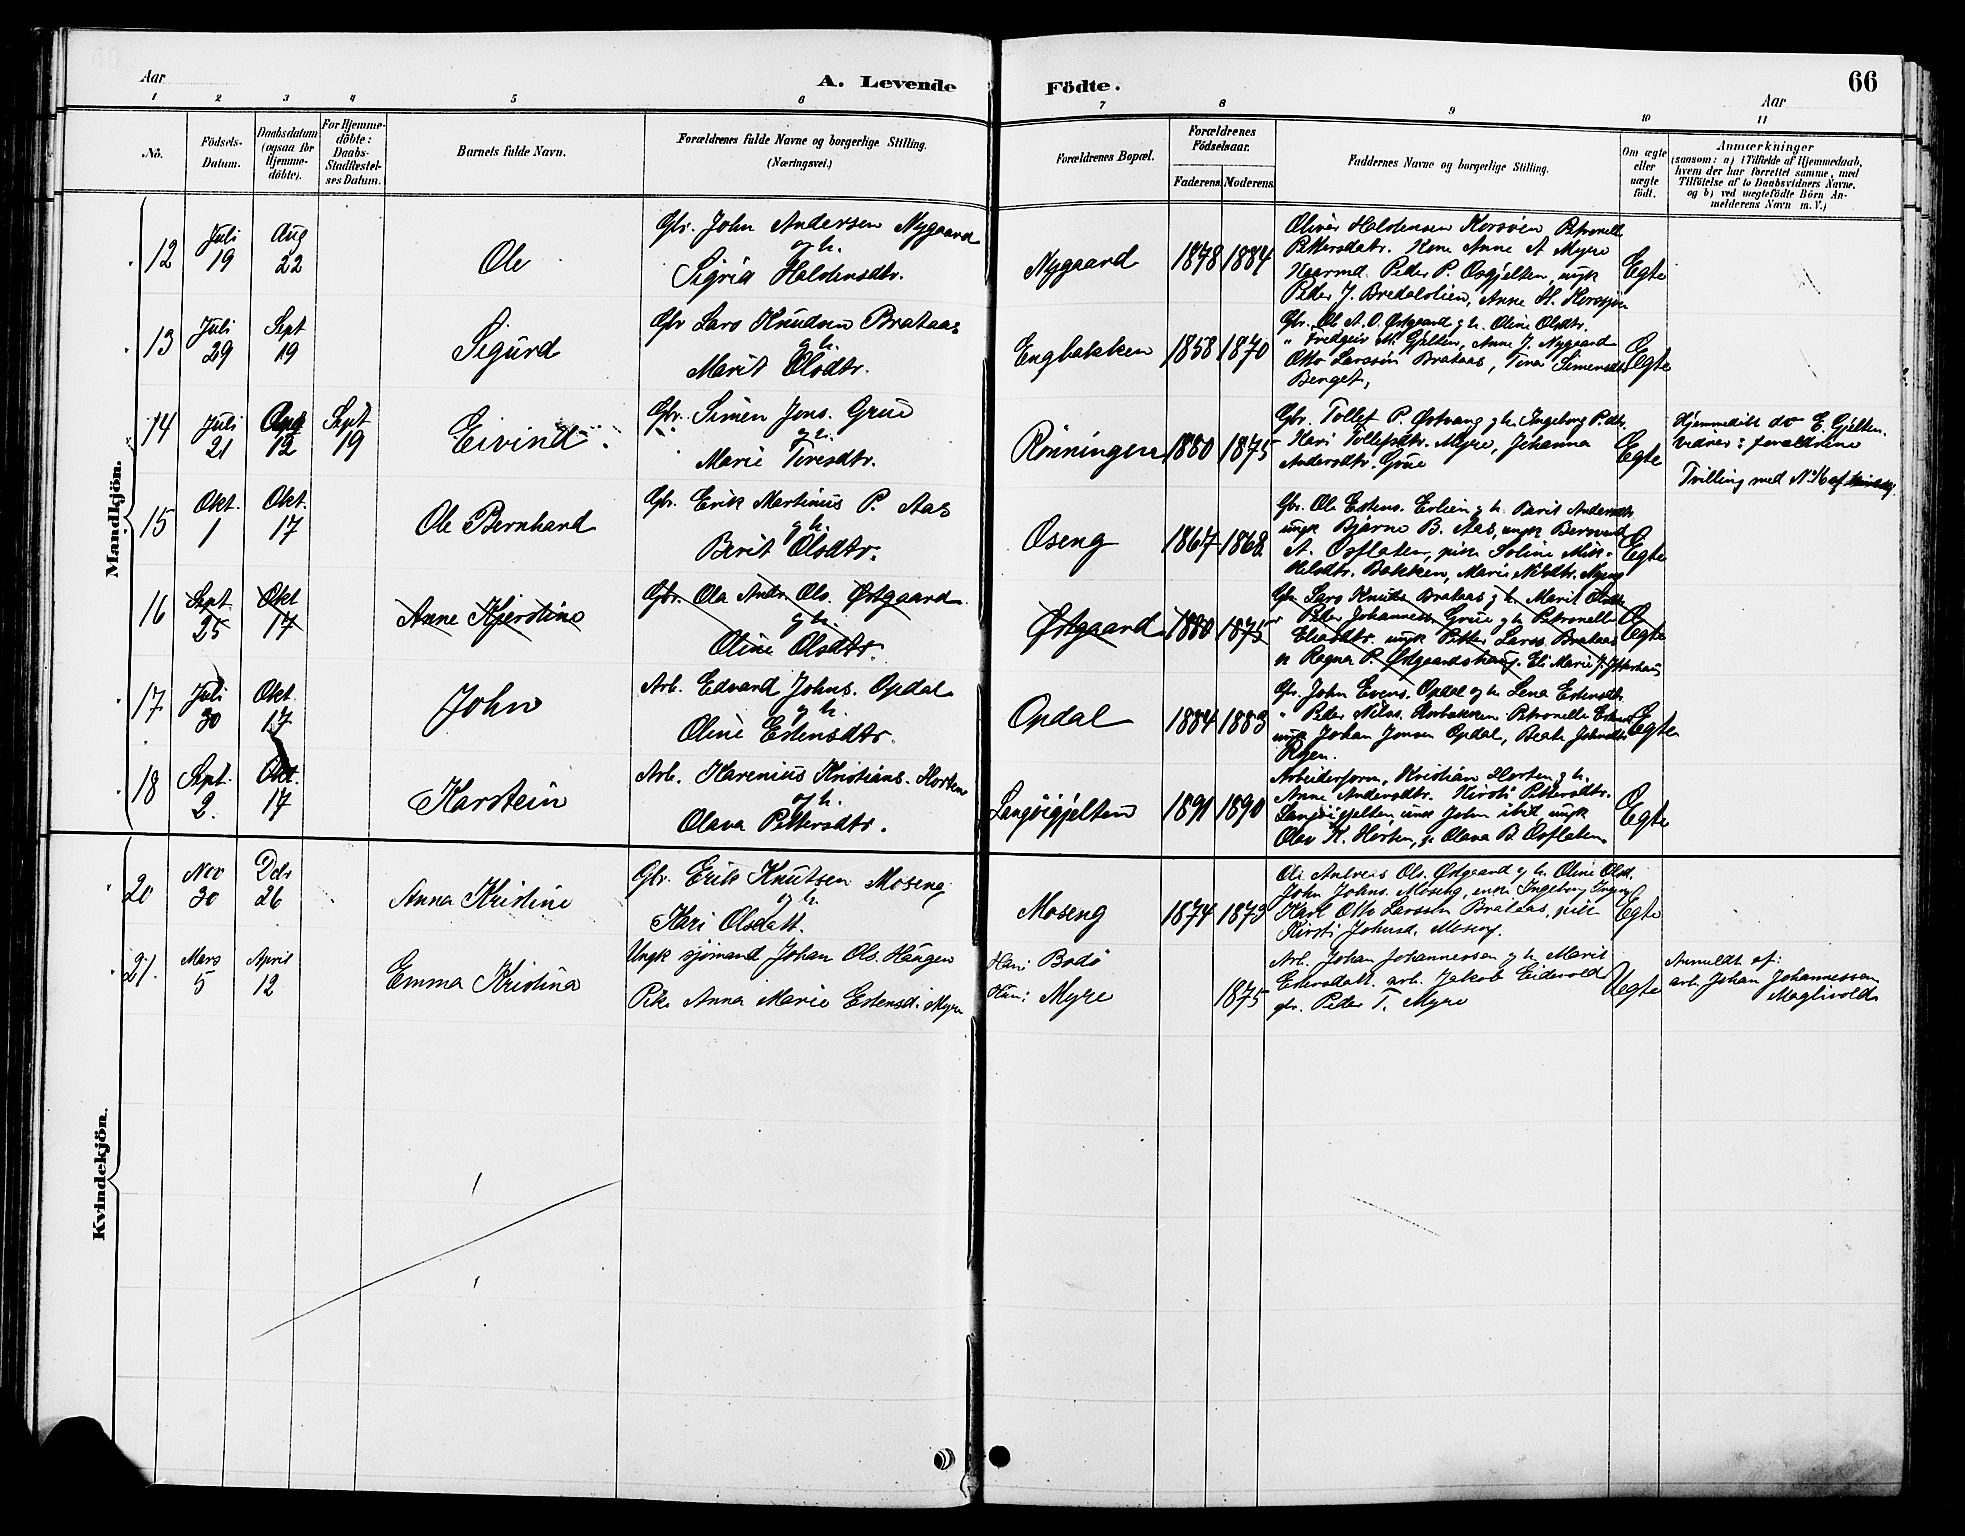 Aar
A. Levende
Födte.
Aar
66
1 2 3 4 5 6 7 8 9 10 11
No.
Födsels-
Datum.
Daabsdatum
(ogsaa for
Hjemme-
döbte).
For Hjemme-
döbte:
Daabs-
Stadfestel-
ses Datum.
Barnets fulde Navn.
Forældrenes fulde Navne og borgerlige Stilling.
(Næringsvei.)
Forældrenes Bopæl.
Forældrenes
Födselsaar.
Faderens.
Moderens.
Faddernes Navne og borgerlige Stilling.
Om ægte
eller
uægte
födt.
Anmærkninger
(saasom: a) i Tilfælde af Hjemmedaab,
hvem der har forrettet samme, med
Tilföielse af to Daabsvidners Navne,
og b) ved uægtefödte Börn An-
melderens Navn m. V.)
Mandkjön.
12
Juli
19
Aug
22
Ole
Gbr. John Andersen Nygaard
og h.
Sigrid Haldensdtr.
Nygaard
1878
1884
Oliver Haldensen Korsöien Petronelle
Pettersdatr. Kone Anne A Myre
Peder P. Osgjelten, ungk
Peder J. Bredalslien, Anne H. Korsjön
Egte
13
Juli
29
Sept
19
Sigurd
Gbr Lars Knudsen Brataas
og h.
Marit Olsdtr.
Engbakken
1858
1870
Gbr. Ole A. O. Østgaard og h. Oline Olsdtr.
" Fredgeir M. Gjelten, Anne J. Nygaard
Otto Larssön Brataas, Tina Simensdtr
Berget,
Egte
14
Juli
21
Aug
12
Sept
19
Eivind.
Gbr. Simen Jons. Grue
og h.
Marie Toresdtr.
Rönningen
1880
1875
Gbr. Tollef P. Østvang og h. Ingeborg P.dtr.
Kari Tollefsdtr. Myre, Johanna
Andersdtr. Grue
Egte
Hjemmedöbt av E. Gjelten.
Vidner: forældrene
Tvilling med No 16 af
15
Okt.
1
Okt.
17
Ole Bernhard
Gbr. Erik Martinus P. Aas
og h.
Berit Olsdtr.
Oseng
1867
1868
Gbr. Ole Estens. Erlien og h. Berit Andersdtr.
ungk Bjarne B. Aas, ungk Bersvend
A. Osflaten, pike Soline Mik-
kelsdtr. Bakken, Marie Nilsdtr. Myeng
Egte
16
Sept
25
Okt
17
Anne Kjerstine
Gbr. Ola Andr. Ols. Østgaard
og h.
Oline Olsdtr.
Østgaard
1880
1875
Gbr. Lars Knuts. Brataas og h. Marit Olsdtr
" Peder Johanness. Grue og h. Petronelle
Eliasdtr. ungk Petter Larss. Brataas
pk Ragna P. Østgaardshaug. Eli Marie J.
Egte
17
Juli
30
Okt.
17
John
Arb. Edvard Johns. Opdal
og h.
Oline Estensdtr.
Opdal
1884
1883
Gbr. John Evens. Opdal og h. Lena Estensdtr.
" Peder Nilss. Petronelle
ungk Johan Jonsen Opdal, Beate Johnsdtr
Röjen.
Egte
18
Sept.
2.
Okt.
17
Karstein
Arb. Harenius Kristians. Horten
og h.
Olava Pettersdtr.
Langöigjelten
1891
1890
Arbeiderform, Kristian Horten og h.
Anne Andersdtr. Kirsti Pettersdtr.
Langöigjelten, ungk John ibid, ungk
Olav K. Horten, p. Olava B. Osflaten
Egte
Kvindekjön.
20
Nov
30
Dcbr
26
Anna Kristine
Gbr. Erik Knutsen Moseng
og h.
Kari Olsdatt.
Moseng
1874
1879
Ole Andreas Ols. Østgaard og h. Oline Olsd.
John Johns. Moseng, enke Ingeborg
Karl Otto Larssen Brataas, pike
Kirsti Johnsd. Moseng.
Egte
21.
Mars
5
April
12
Emma Kristina
Ungk sjömand Johan Ols. Haugen
Pike Anna Marie Estensd. Myre
Han: Bodö
Hun: Myre
1875
Arb. Johan Johannessen og h. Marit
Estensdatt. arb. Jakob Eidsvold
gbr. Peder T. Myre
Uegte
Anmeldt af:
arb. Johan Johannessen
Moglivold